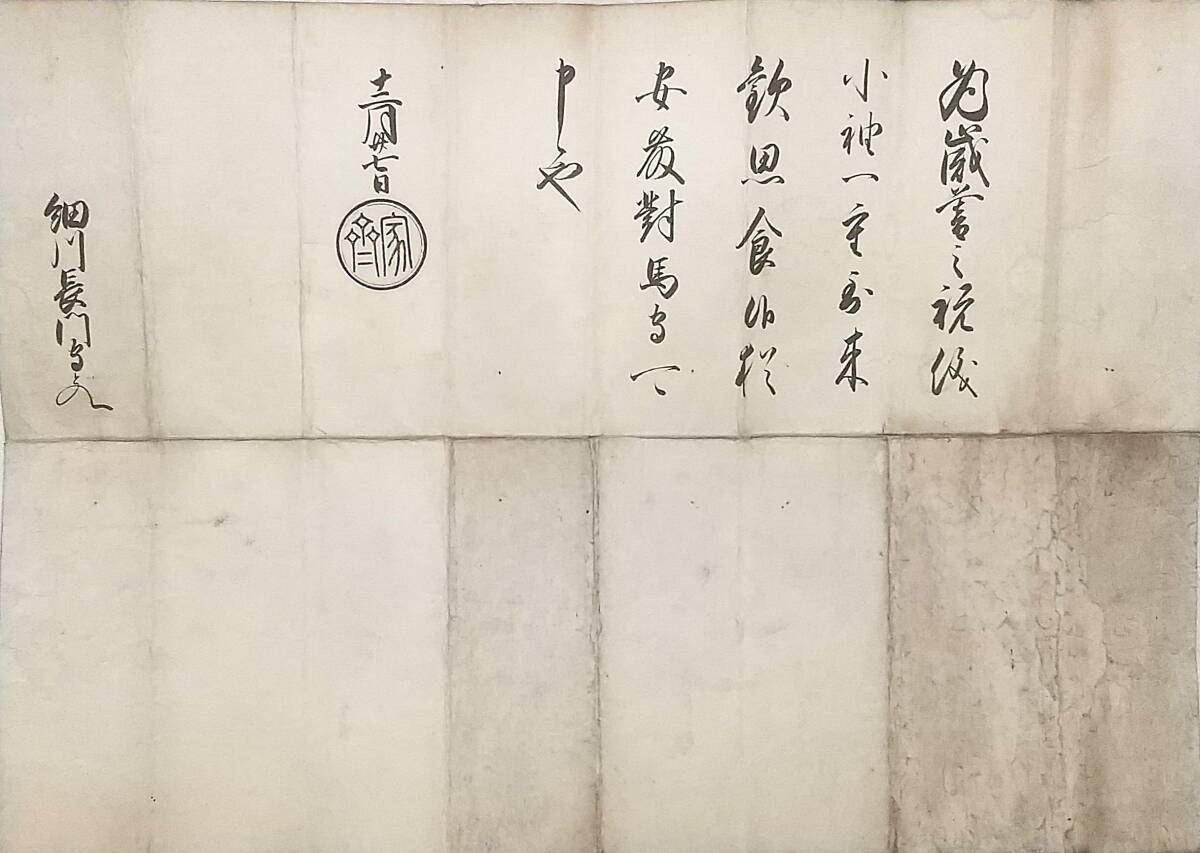 為歳暮之祝儀
小袖一重到来
歓思食候猶
安藤對馬守可
申候也
十二月廿七日
家齊
細川長門守とのへ